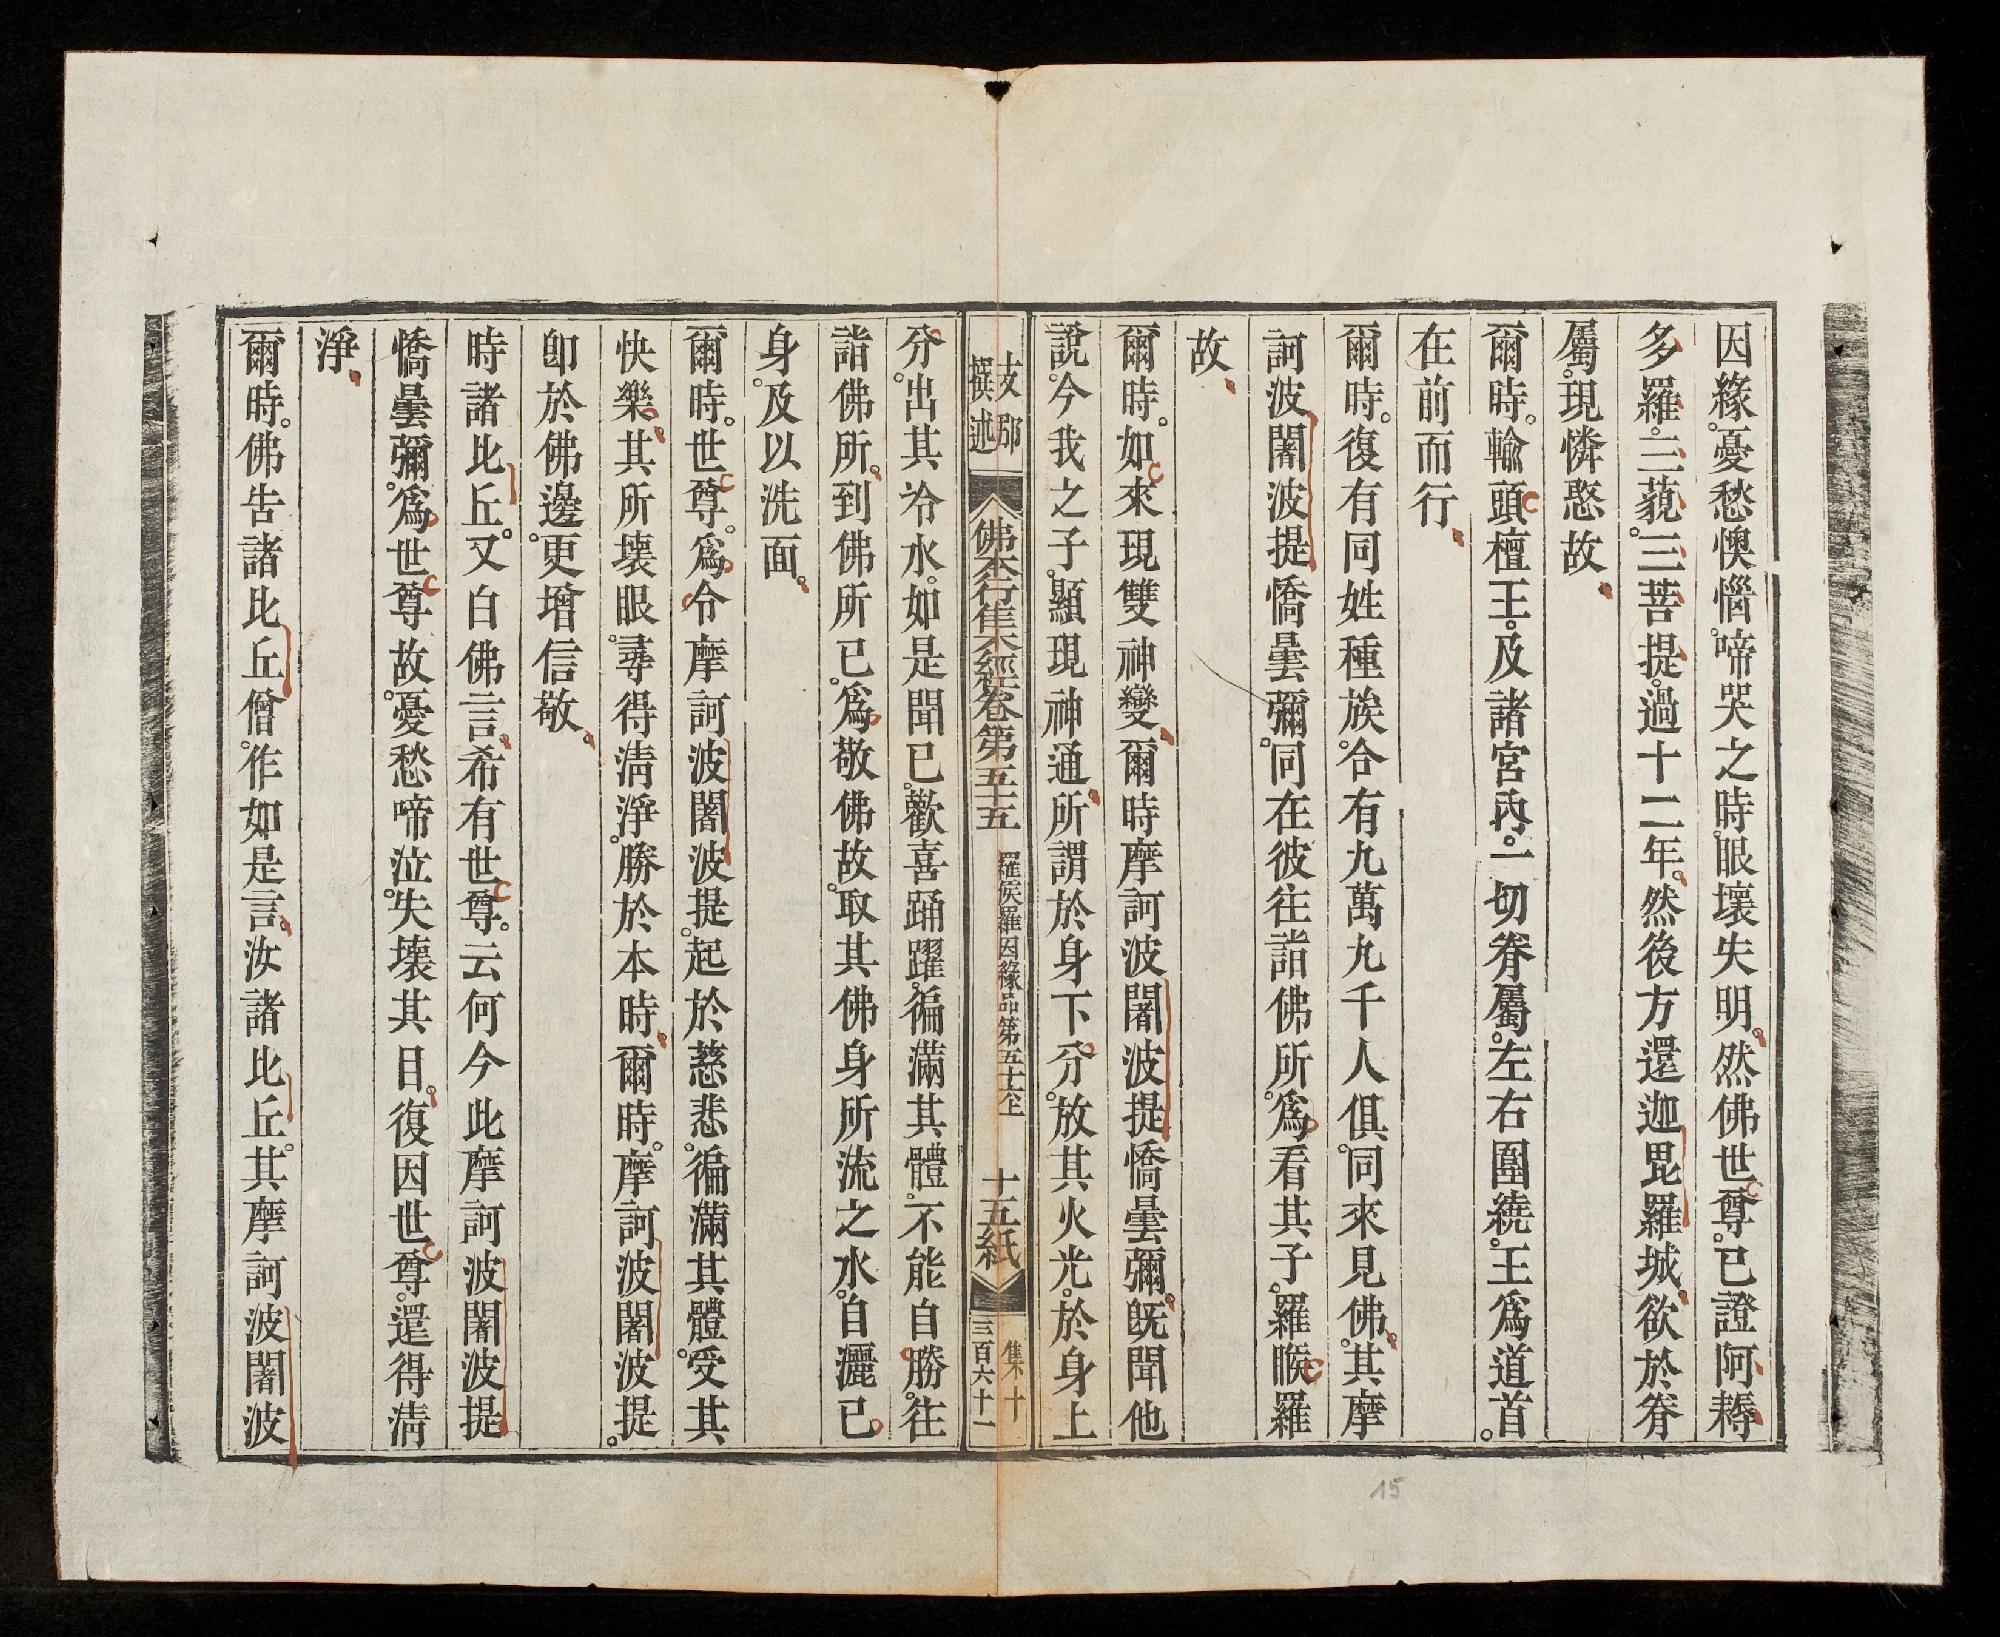 因緣。憂愁懊惱。啼哭之時。眼壞失明。然佛世尊。已證阿耨
多羅。三藐。三菩提。過十二年。然後方還迦毘羅城。欲於眷
屬。現憐愍故。
爾時。輸頭檀王。及諸宮內。一切眷屬。左右圍繞。王爲道首。
在前而行。
爾時。復有同姓種族。合有九萬九千人俱。同來見佛。其摩
訶波闍波提憍曇彌。同在彼往詣佛所。爲看其子。羅睺羅
故。
爾時。如來現雙神變。爾時摩訶波闍波提憍曇彌。旣聞他
說。今我之子。顯現神通。所謂於身下。分。放其火光。於身上
支那
撰述
佛本行集經卷第五十五
羅睺羅因緣品第五十六上
十五紙
集十
三百六十一
分。出其冷水。如是聞已。歡喜踊躍。徧滿其體。不能自勝。往
詣佛所。到佛所已。爲敬佛故。取其佛身所流之水。自灑已
身。及以洗面。
爾時。世尊。爲令摩訶波闍波提。起於慈悲。徧滿其體。受其
快樂。其所壞眼。尋得淸淨。勝於本時。爾時。摩訶波闍波提。
卽於佛邊。更增信敬。
時諸比丘。又白佛言。希有世尊。云何今此摩訶波闍波提
憍曇彌。爲世尊故。憂愁啼泣。失壞其目。復因世尊。還得淸
淨。
爾時。佛告諸比丘僧。作如是言。汝諸比丘。其摩訶波闍波
15